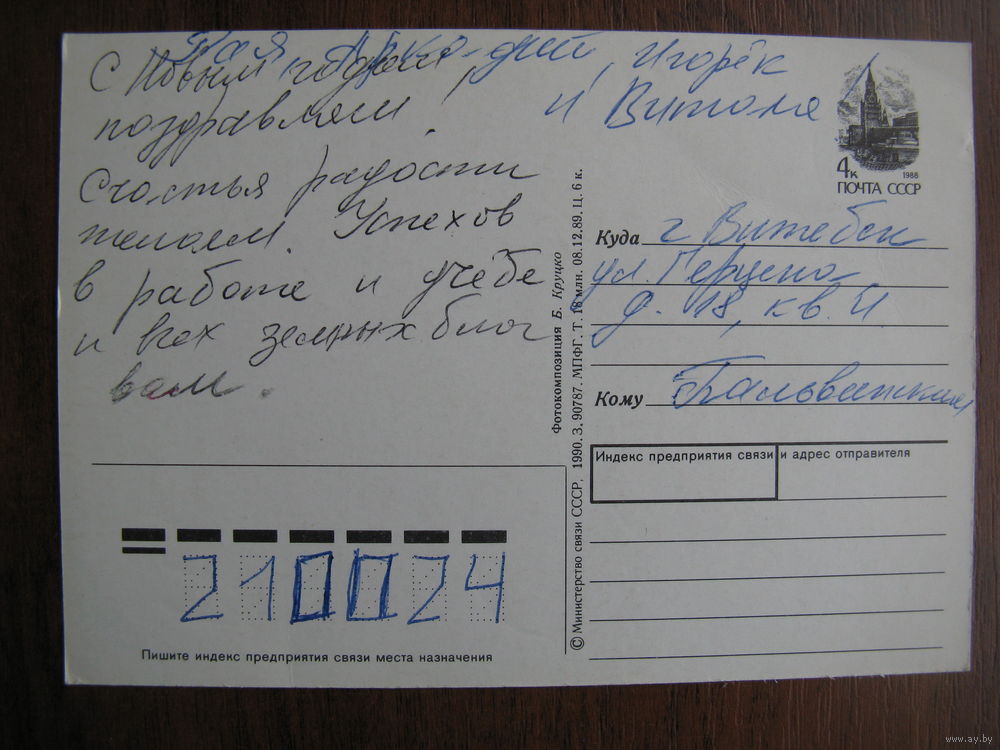 Тая, Аркадий, Игорёк
и Виталя
С Новым годом
поздравляем!
Счастья радости
желаем. Успехов
в работе и учёбе
и всех земных благ
вам.
4к
1988
ПОЧТА СССР
Куда г Витебск
ул. Герцена
д. 18, кв. 4
Кому
Индекс предприятия связи и адрес отправителя
Фотокомпозиция Б. Круцко
© Министерство связи СССР, 1990. З. 90787. МПФГ. Т. 18 млн. 08.12.89. Ц. 6 к.
210024
Пишите индекс предприятия связи места назначения
www.ay.by